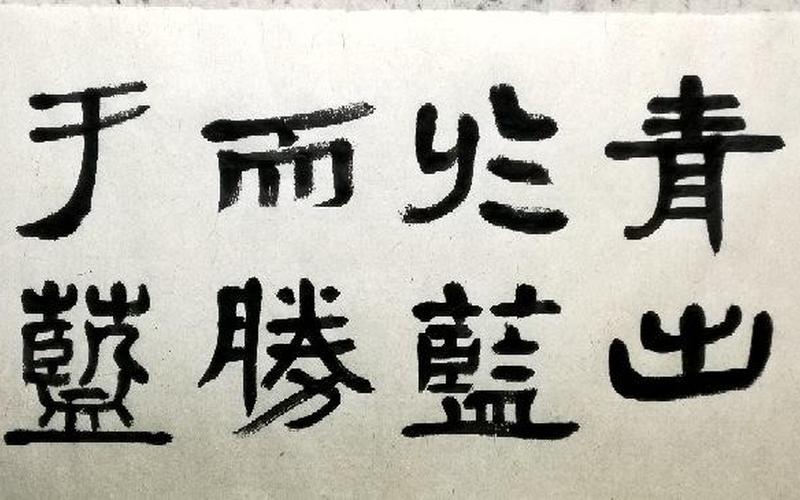 青出
於藍
而勝
于藍